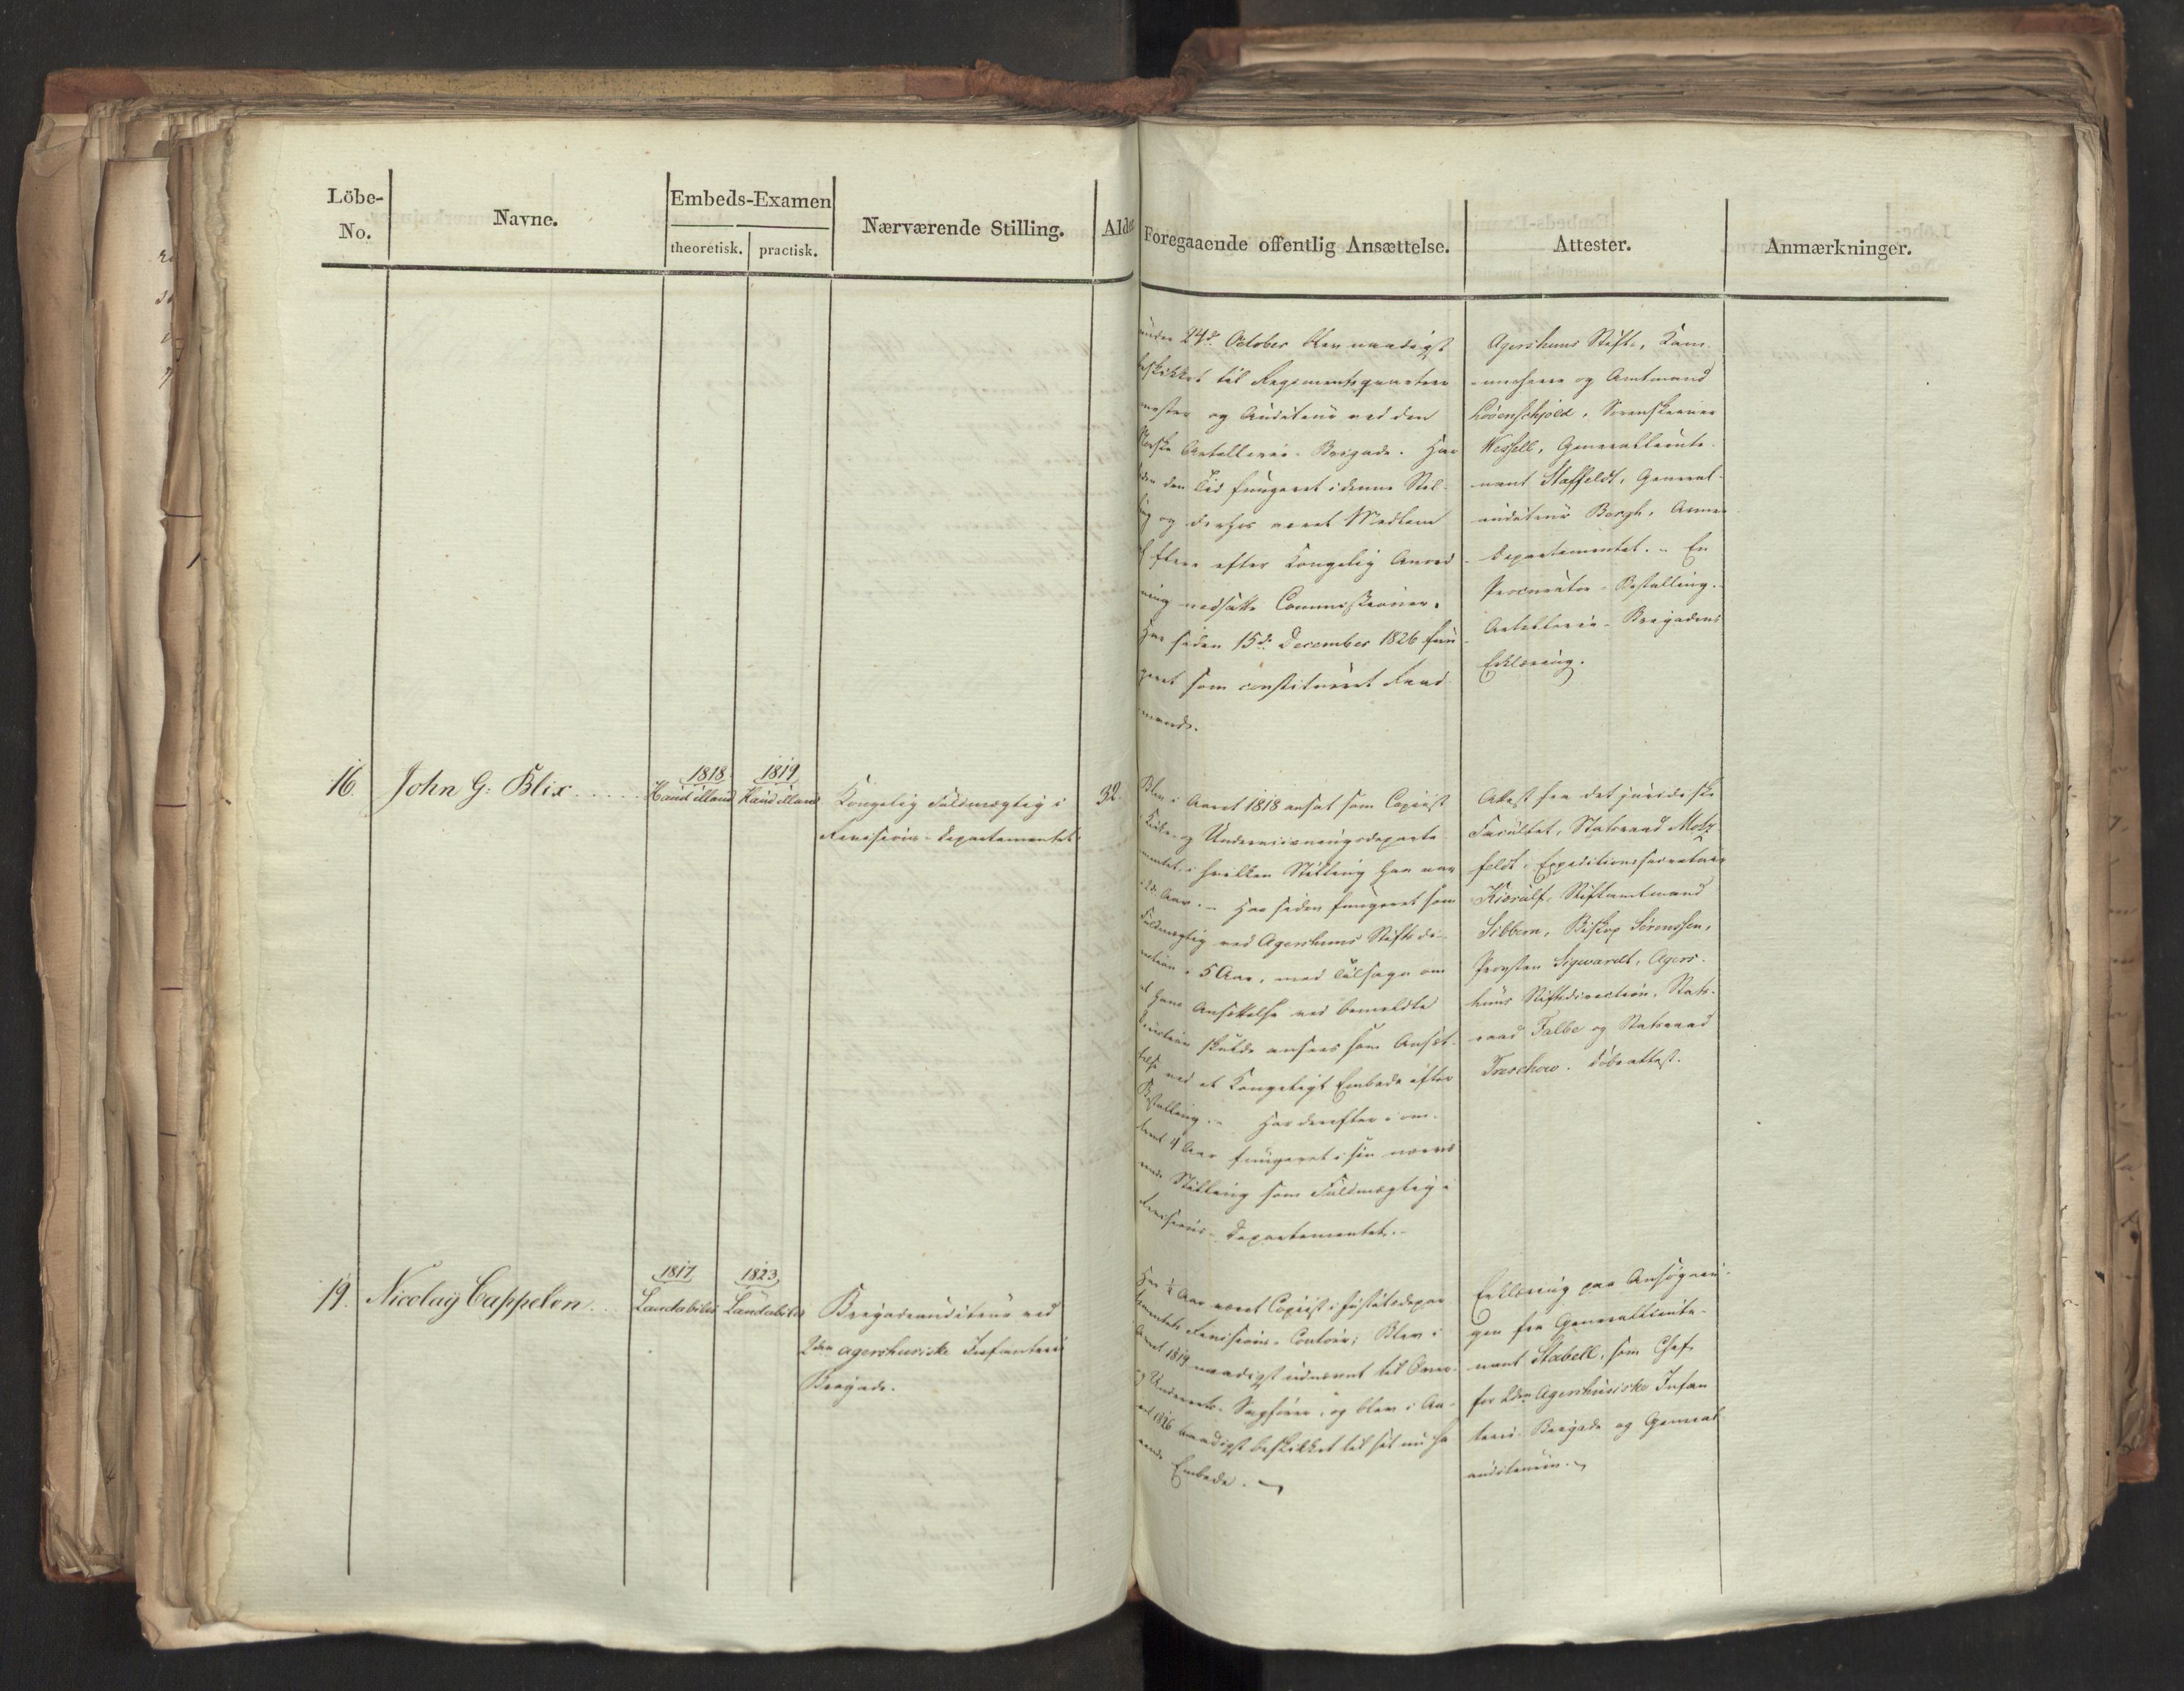 Löbe-
No.
Navne.
Embeds-Examen
theoretisk.
practisk.
Nærværende Stilling.
Alder
Foregaaende offentlig Ansættelse.
Attester.
Anmærkninger.
under 24d. October blev naadigst
beskikket til Regimentsqvarteer
mester og Auditeur ved den
Norske Artillerie-Brigade. Har
siden den Tid fungeret i denne Stil-
ling og derhos været Medlem
af flere efter Kongelig Anord
ning nedsatte Commissioner.
Har siden 15d. December 1826 fun
geret som constitueret Raad
mand.
Agershuus Stift, Kam
merherre og Amtmand
Løvenskjold, Sorenskriver
Wessell, Generallieute-
nant Staffeldt, General-
auditeur Bergh, Armee
Departementet. En
Procurator-Bestalling.
Artillerie-Brigadens
Erklæring.
16.
John G: Blix
1818
Haud illaud
1819
Haud illaud
Kongelig Fuldmægtig i
Revisions-Departementet
32.
Blev i Aaret 1818 ansat som Copiist
i Kirke- og Underviisningsdeparte
mentet, i hvilken Stilling han var
i 2de Aar. Har siden fungeret som
Fuldmægtig ved Agershuus Stiftsdi-
rection i 5 Aar, med Tilsagn om
at hans Ansættelse ved bemeldte
Direction skulde ansees som Ansæt-
telse ved et Kongeligt Embede efter
Bestalling. Har derefter i om-
trent 4 Aar fungeret i sin nærvæ
rende Stilling som Fuldmægtig i
Revisions-Departementet.
Attest fra det juridiske
Facultet, Statsraad Motz
feldt, Expeditionssecretair
Kierulf, Stiftamtmand
Sibbern, Biskop Sörenssen,
Provsten Sigwardt, Agers-
huus Stiftsdirection, Stats-
raad Falbe og Statsraad
Treschow. Döbeattest.
19.
Nicolaÿ Cappelen
1817
Laudabilis
1823
Laudabilis
Brigadeauditeur ved
2den agershusiske Infanterie
Brigade.
Har ½ Aar været Copiist i Justitsdepar
tementets Revisions-Contoir; Blev i
Aaret 1819 naadigst udnævnt til Over-
og Underrets-Sagfører, og blev i Aa-
ret 1826 naadigst beskikket til sit nu ha
vende Embede.
Erklæring paa Ansögnin-
gen fra Generallieute-
nant Stabell, som Chef
for 2den Agershusiske Infan
terie-Brigade og General
auditeuren.